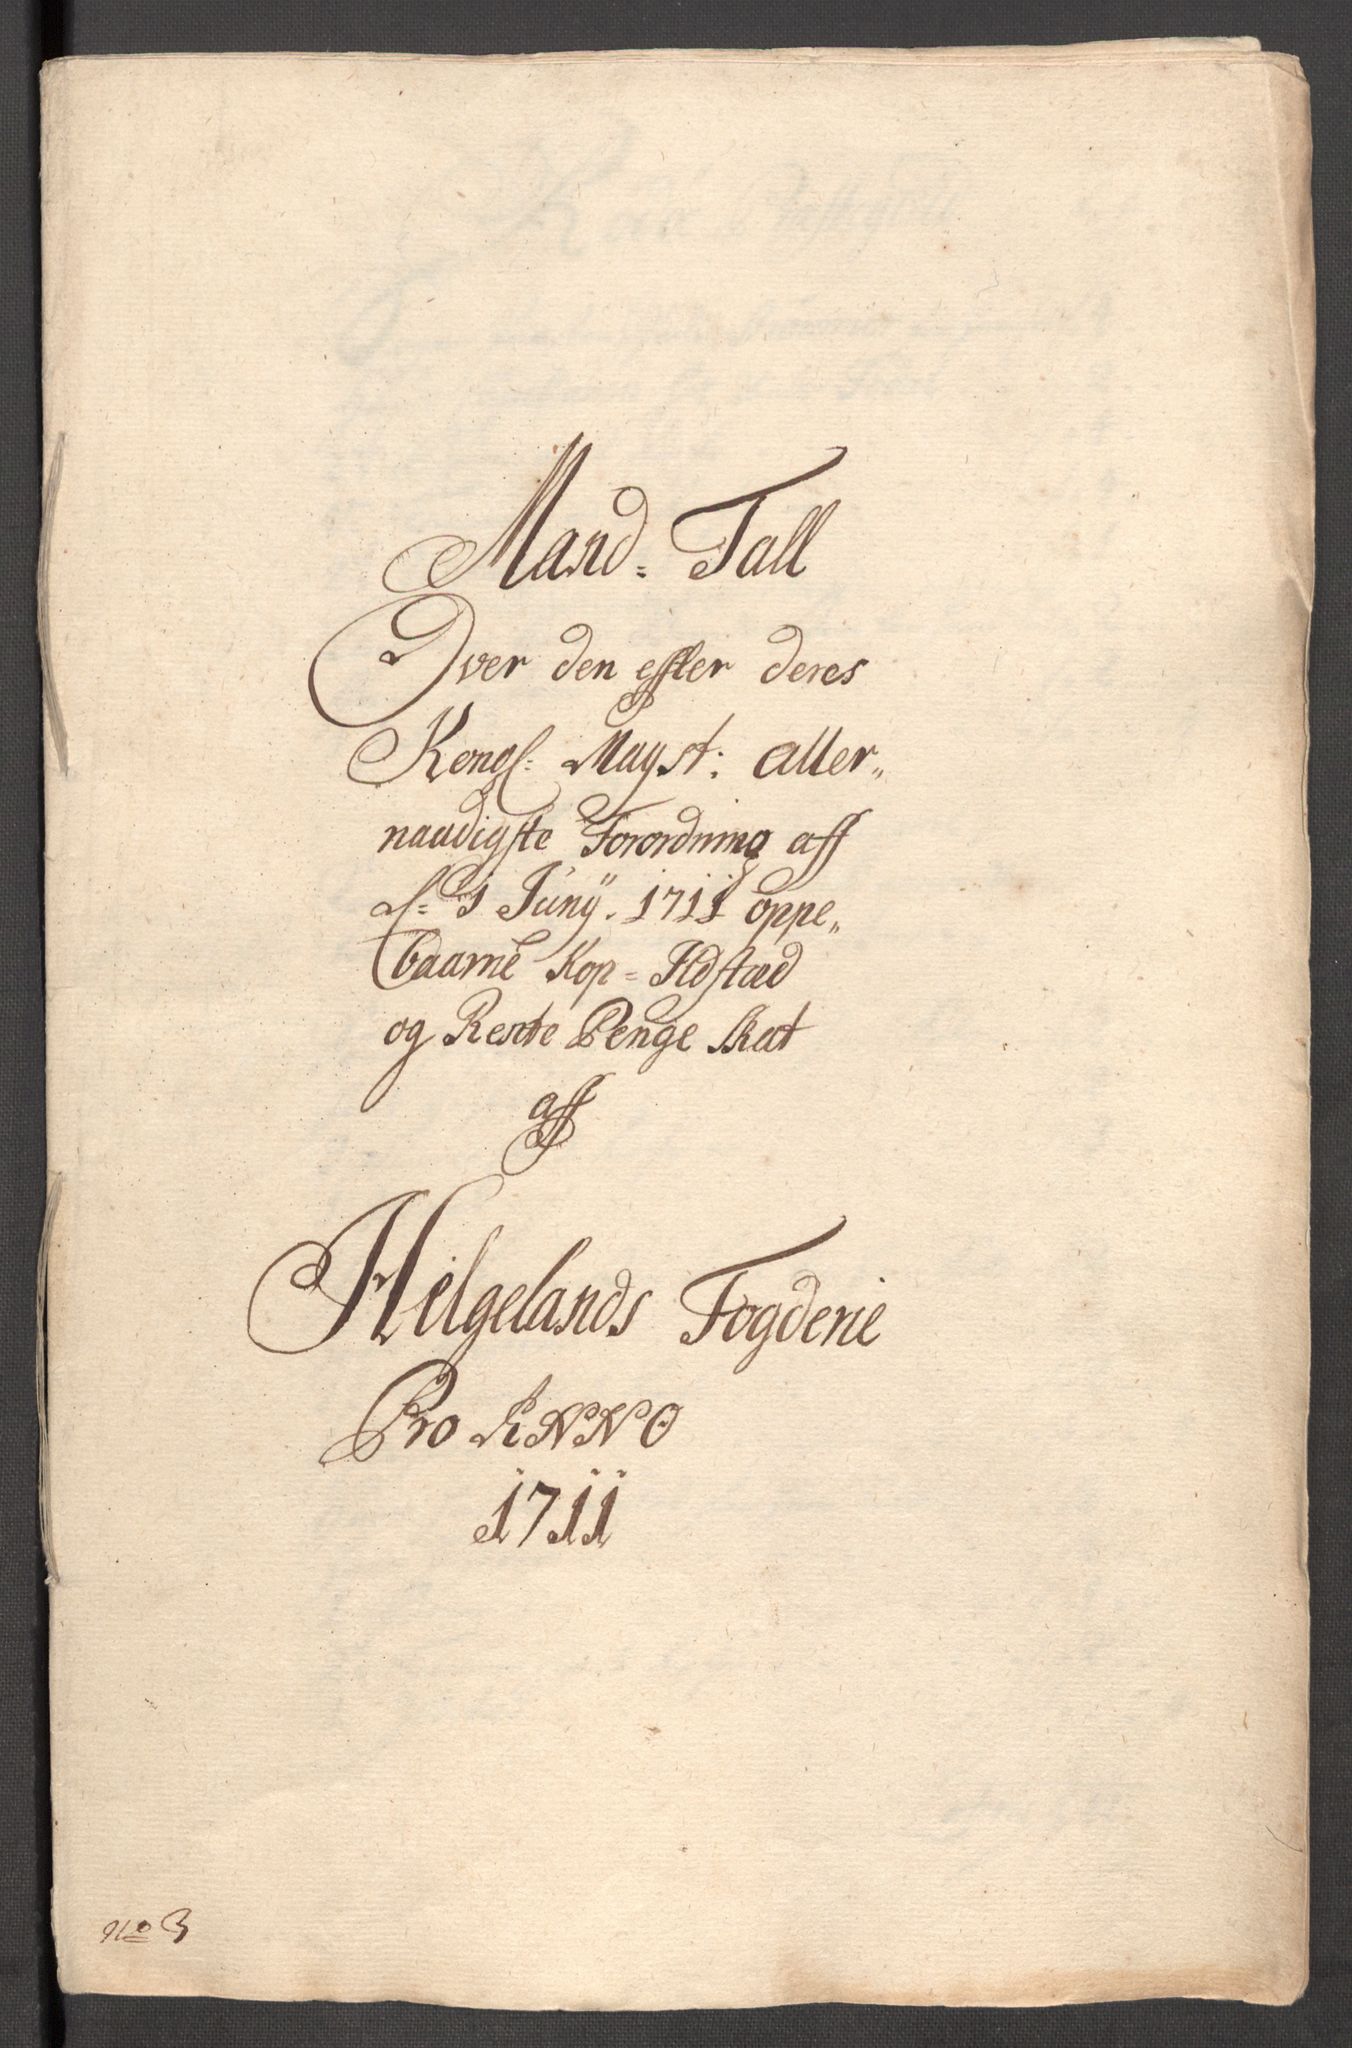 Mand= Tall
Over den effter deres
Kongl: Mayst: aller„
naadigste Forordning aff
d= 1 Junÿ. 1711 oppe„
baarne Kop= Ildstæd
og Rente Penge Skat
aff
Helgelands Fogderie
Pro ANNO
1711
No 3